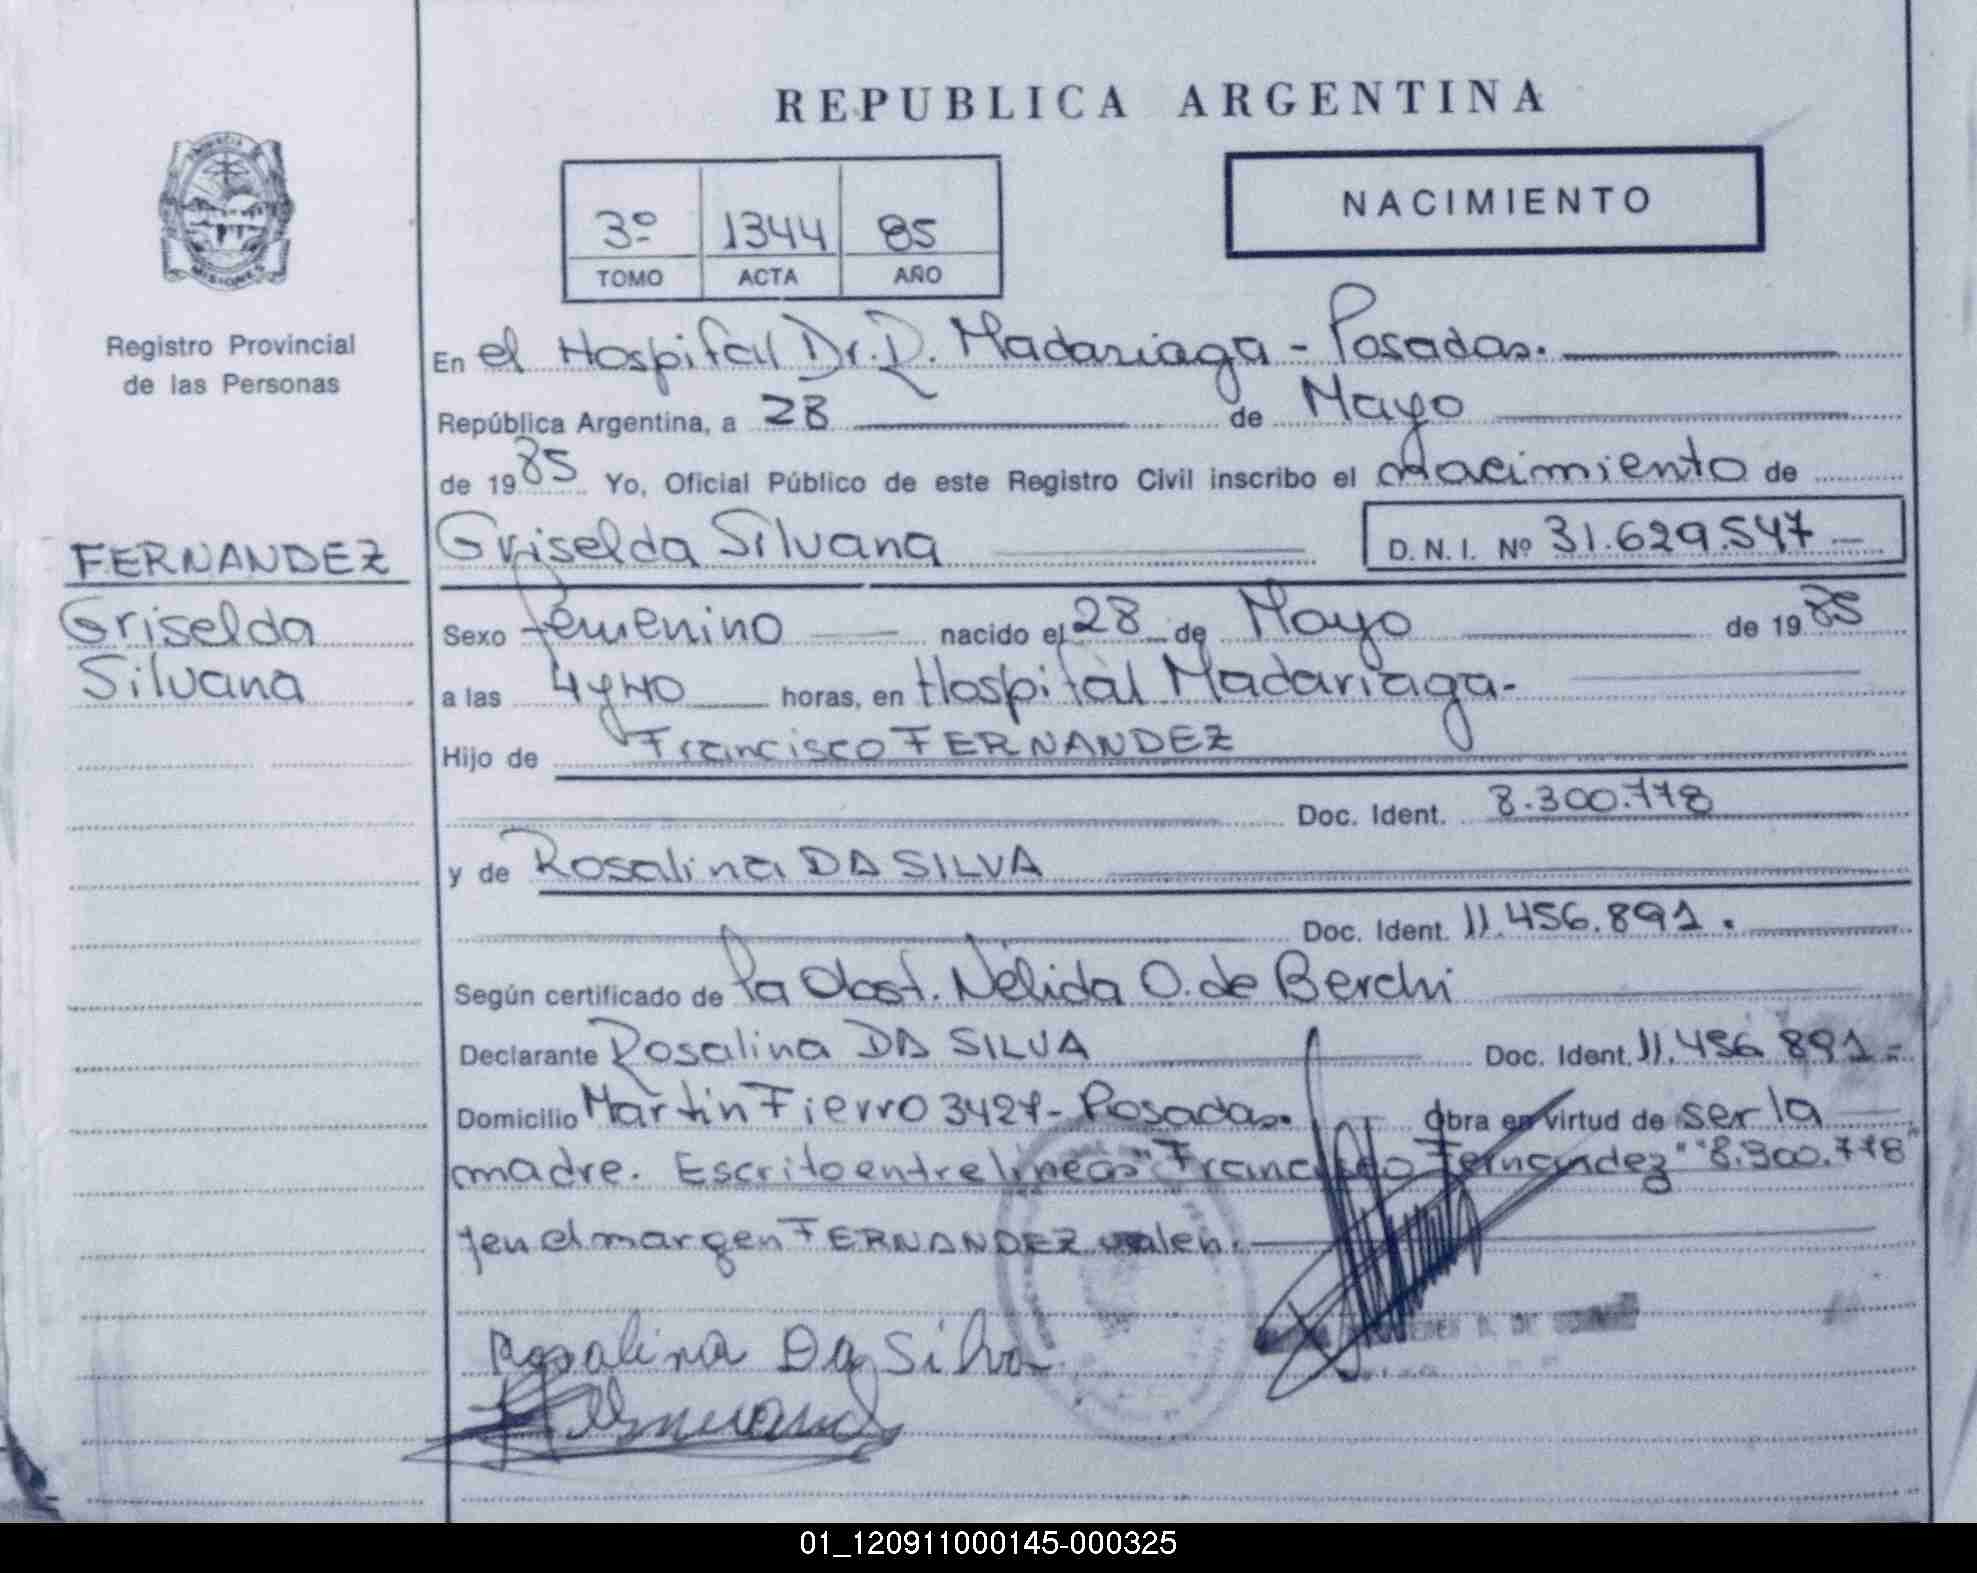 REPUBLICA ARGENTINA
NACIMIENTO
3º 1344 85
TOMO ACTA AÑO
MISIONES
Registro Provincial
de las Personas
FERNANDEZ
Griselda
Silvana
En el Hospital Dr. R. Madariaga - Posadas.
República Argentina, a 28 de Mayo
de 1985 Yo, Oficial Público de este Registro Civil inscribo el Nacimiento de
Griselda Silvana D.N.I. Nº 31.629.547
Sexo femenino nacido el 28 de Mayo de 1985
a las 4 y 40 horas, en Hospital Madariaga-
Hijo de Francisco FERNANDEZ
Doc. Ident. 8.300.778
y de Rosalina DA SILVA
Doc. Ident. 11.456.891.
Según certificado de la Obst. Nélida O. de Berchi
Declarante Rosalina DA SILVA Doc. Ident. 11.456.891-
Domicilio Martin Fierro 3427- Posadas. Obra en virtud de ser la
madre. Escrito entre lineas "Francisco Fernandez" "8.300.778"
y en el margen FERNANDEZ valen.
Rosalina Da Silva
01_120911000145-000325